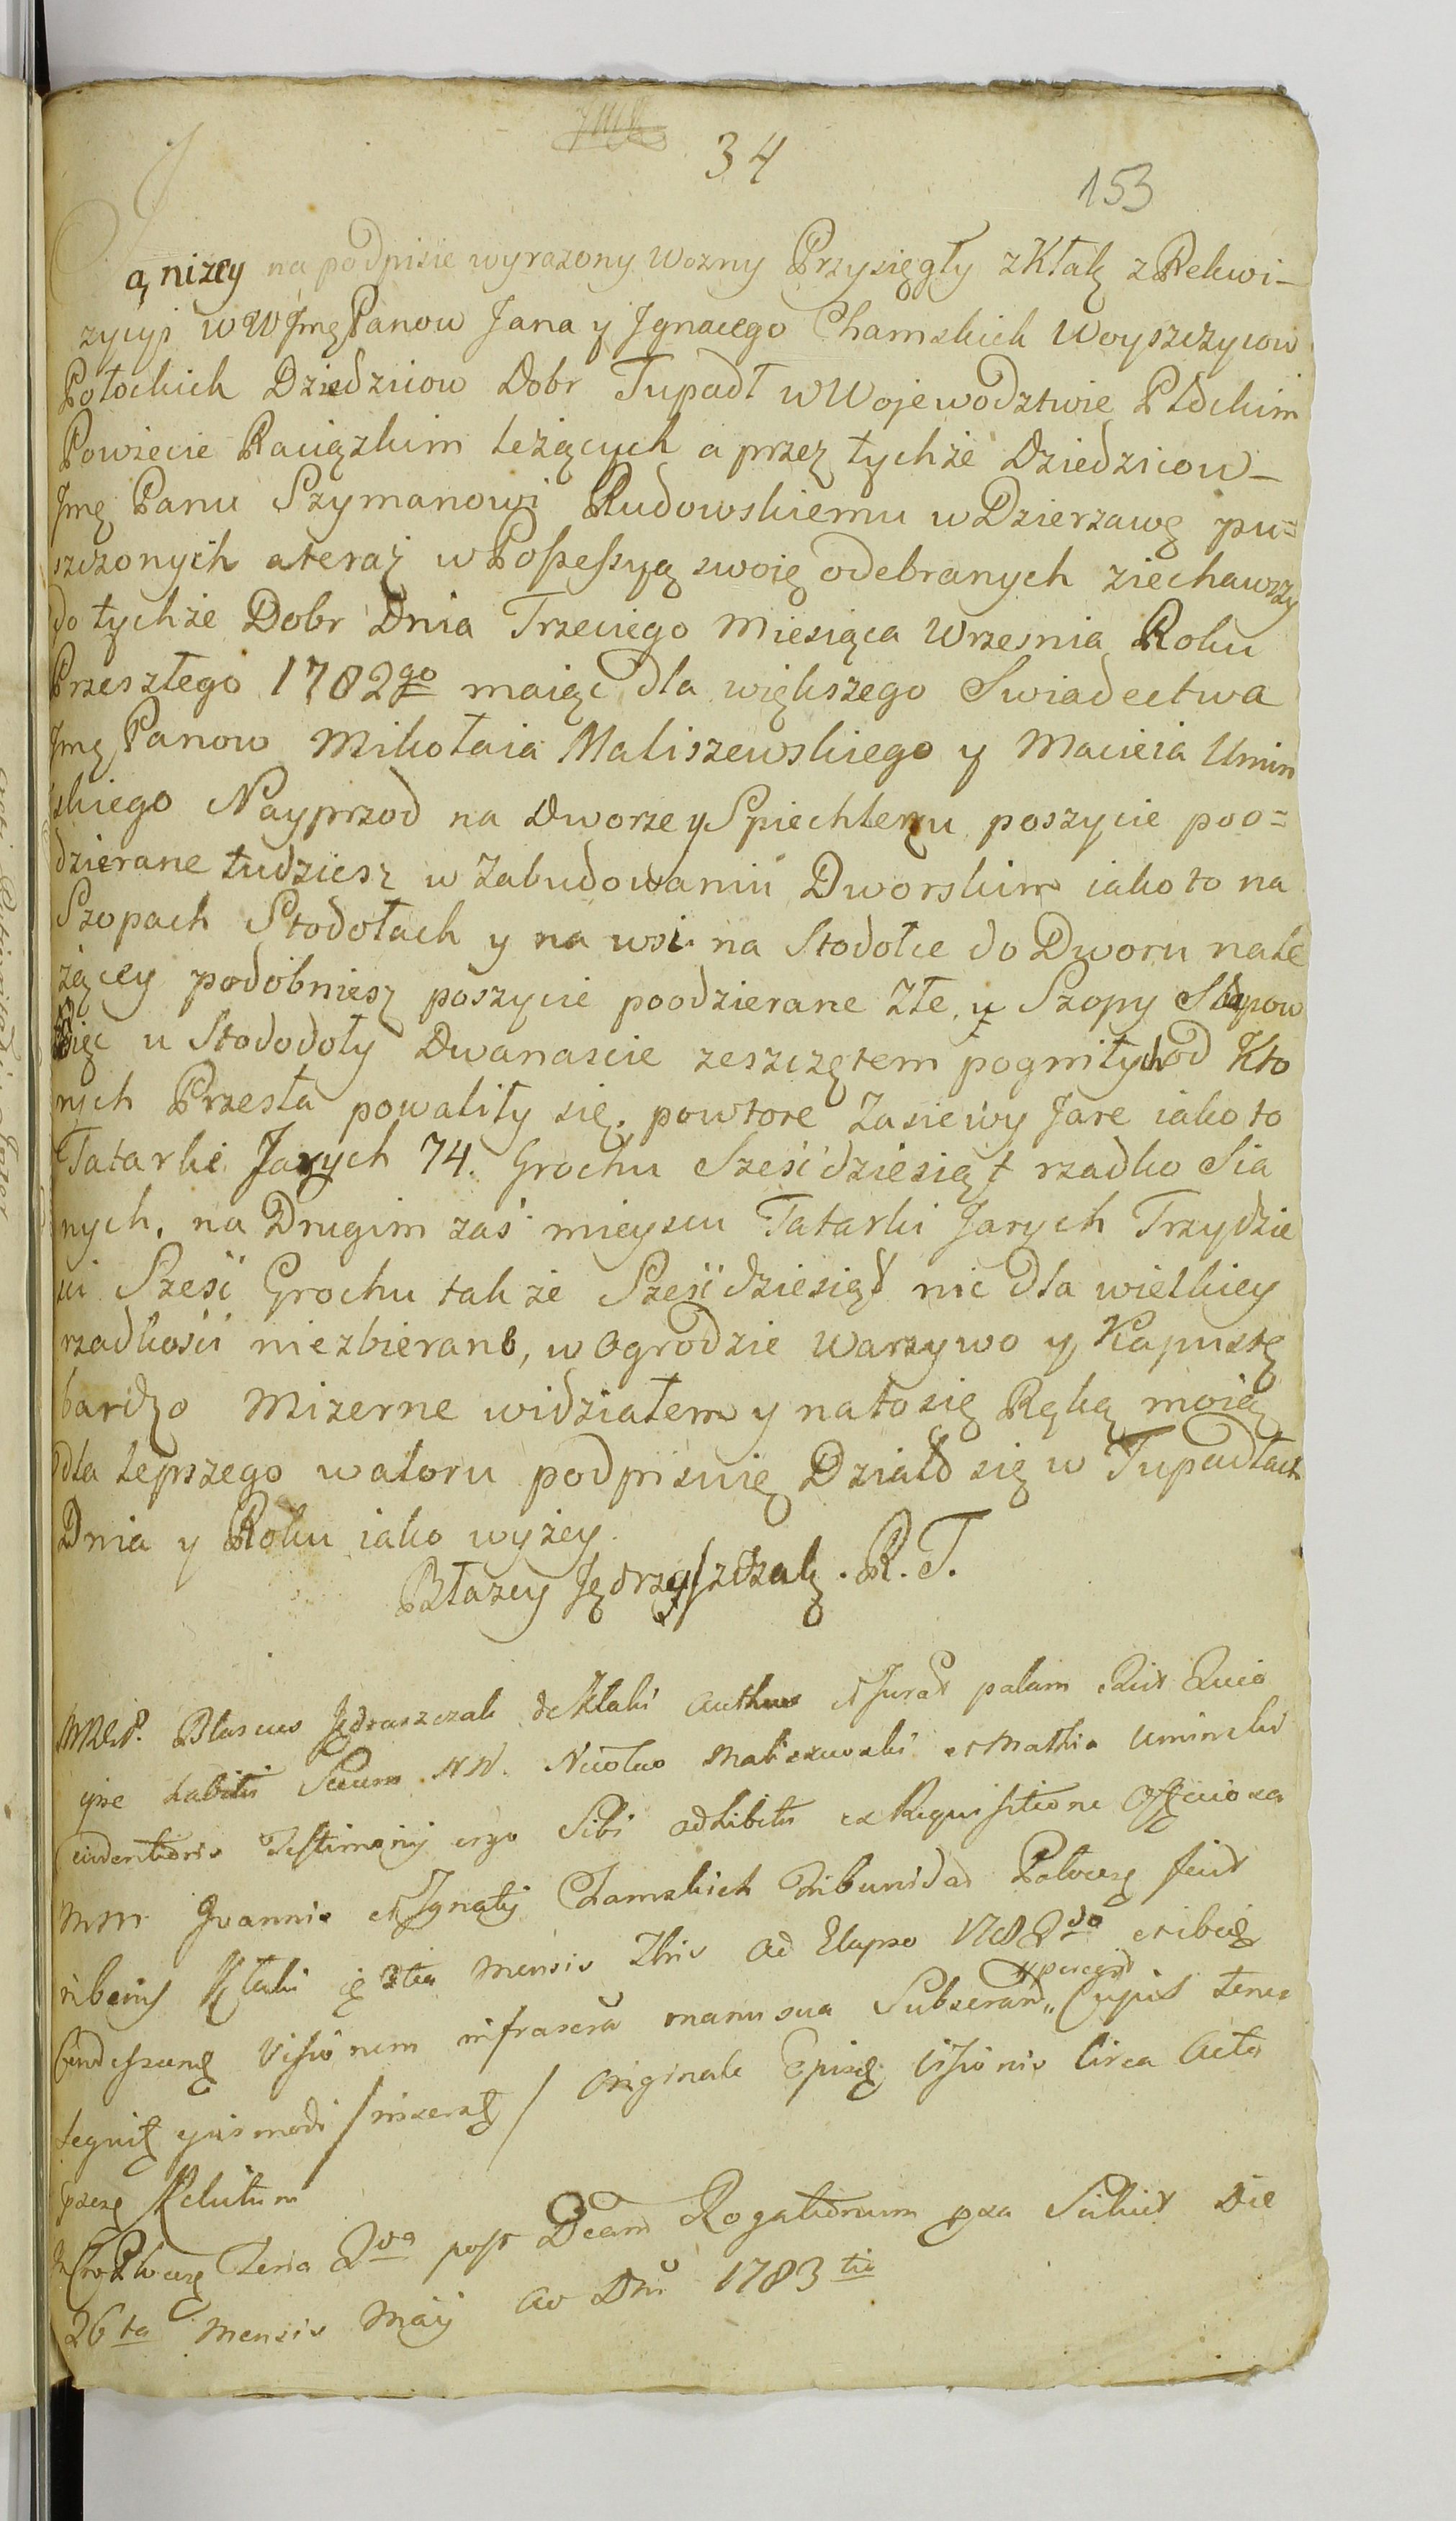 34
153
Ja niżey na podpisie wyrazony Wozny Przysięgły z Kłak z Rekwi-
zycyi WW Jmę Panow Jana y Jgnacego Chamskich Woyszczycow
Połockich Dziedzicow Dobr Tupadł w Wojewodztwie Płockim
Powiecie Raciązkim leżących a przez tychże Dziedzicow-
Jmę Panu Szymanowi Rudowskiemu w Dzierzawę pu=
szczonych a teraz w Possessyą swoię odebranych ziechawszy
do tychże Dobr Dnia Trzeciego Miesiąca Wrzesnia Roku
Przeszłego 1782go maiąc dla większego Swiadectwa
Jmę Panow Mikołaia Maliszewskiego y Macieia Umin
skiego Nayprzod na Dworze y Spiechlerzu poszycie poo=
dzierane tudziesz w Zabudowaniu Dworskim iako to na
Szopach Stodołach y na wsi na Stodołce do Dworu nale
żącey podobniesz poszycie poodzierane Złe, u Szopy Słupow
u Stododoły Dwanascie zeszczętem pogniłych od Kto
rych Przesła powaliły się. powtore Zasiewy Jare iako to
Tatarki Jarych 74. Grochu Sześćdziesiąt rzadko Sia
nych, na Drugim zaś mieyscu Tatarki Jarych Trzydzie
sci Sześć Grochu także Sześćdziesiąt nic dla wielkiey
rzadkości niezbierano, w Ogrodzie Warzywo y Kapustę
bardzo Mizerne widziałem y na to się Ręką moią
dla lepszego waloru podpisuię Działo się w Tupadłach
Dnia y Roku iako wyżey.
Błazey Jędrzyszczak. R. T.
Blasius Jędraszczak de Kłaki Auth et Jurat palam Quia
ipse habitis Secum NN. Nicolao Maliszewski et Mathia Uminski
evidentioris Testimonij ergo Sibi adhibitis ex Requisitione Officiosa
MM Joannis et Ignatij Chamskich Tribunidad Połocen fuit
in bonis Kłaki 3tia Mensis 7bris Ao Elapso 1782do et ibiq
Condescen Visionem infrascra manu sua Subscram Cujus tenor
sequit ejusmodi /inserat/ Originale Episq Visionis Circa Acta
Relictum
Feria 2da post Dcam Rogationum pxa Scilicet Die
26ta Mensis Maij Ao Dni 1783tio